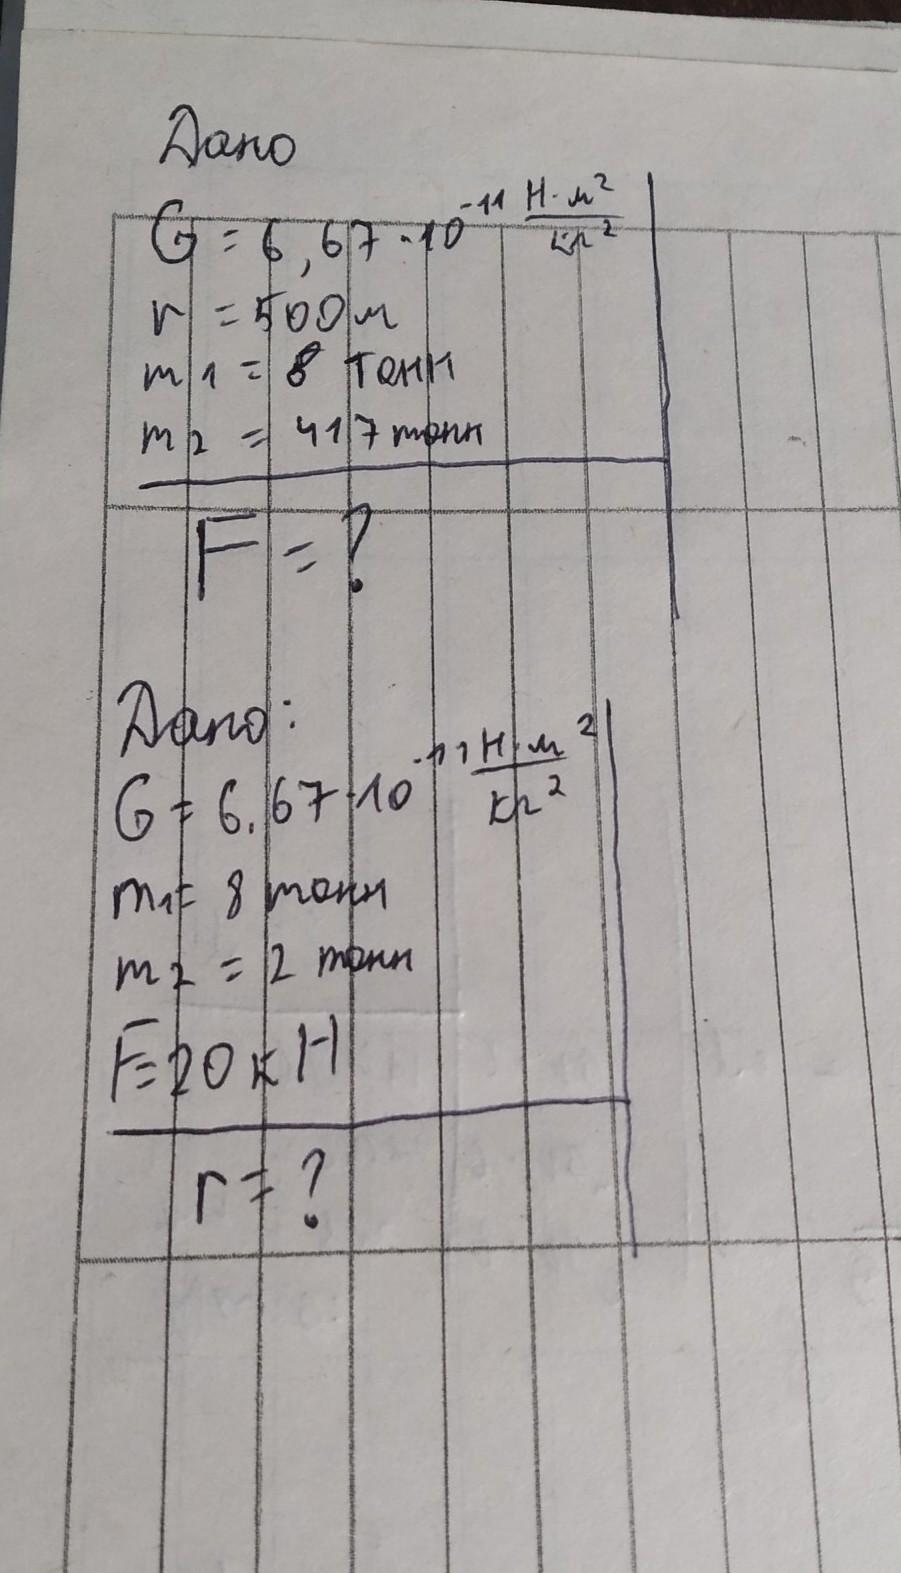 Дано
G = 6,67 · 10⁻¹¹ Н·м²/кг²
r = 500 м
m1 = 8 тонн
m2 = 417 тонн
F = ?
Дано:
G = 6,67 · 10⁻¹¹ Н·м²/кг²
m1 = 8 тонн
m2 = 2 тонн
F = 20 кН
r = ?